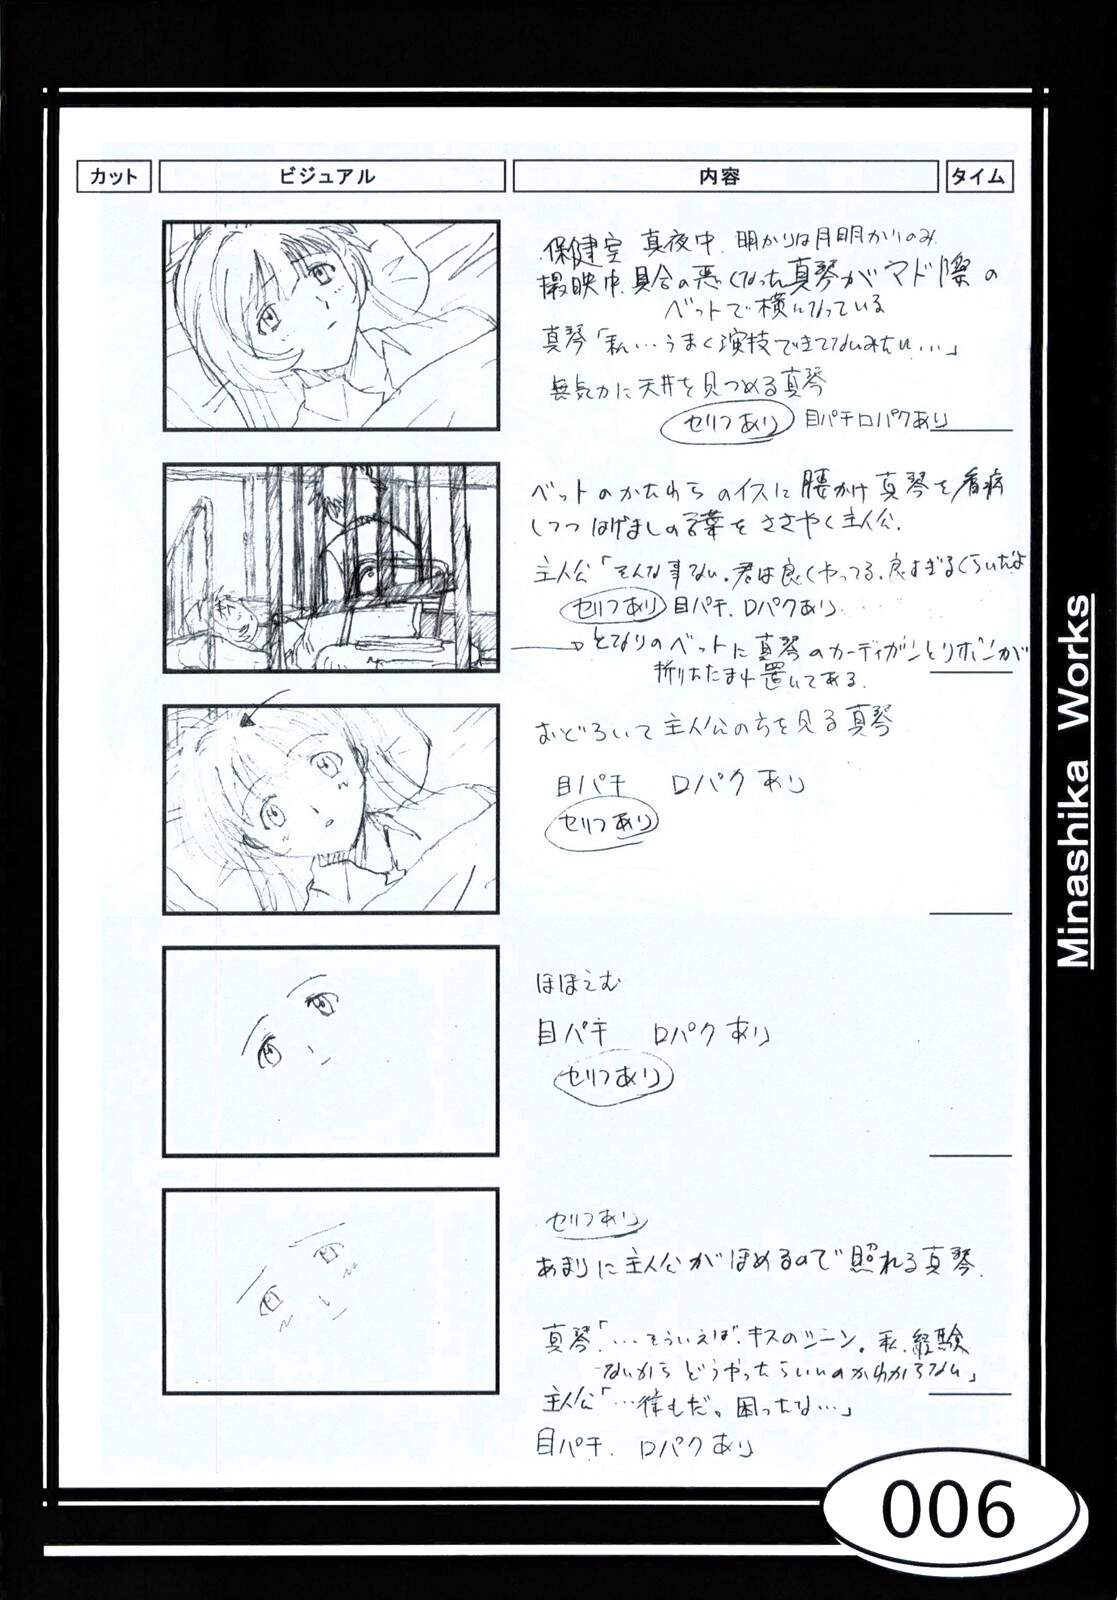 カット ビジュアル 内容 タイム
保健室 真夜中. 明かりは月明かりのみ
撮映中、具合の悪くなった真琴がマド際の
ベットで横になっている
真琴「私…うまく演技できてないみたい…」
無気力に天井を見つめる真琴
セリフあり 目パチ口パクあり
ベットのかたわらのイスに腰かけ真琴を看病
しつつはげましの言葉をささやく主人公.
主人公「そんな事ない。君は良くやってる、良すぎるくらいだよ
セリフあり 目パチ、口パクあり
となりのベットに真琴のカーディガンとリボンが
折りたたまれ置いてある.
おどろいて主人公の方を見る真琴
目パチ 口パクあり
セリフあり
ほほえむ
目パチ 口パクあり
セリフあり
セリフあり
あまりに主人公がほめるので照れる真琴.
真琴「…そういえば、キスのシーン。私、経験
ないからどうやったらいいのかわからない」
主人公「…僕もだ。困ったな…」
目パチ、口パクあり
Minashika Works
006